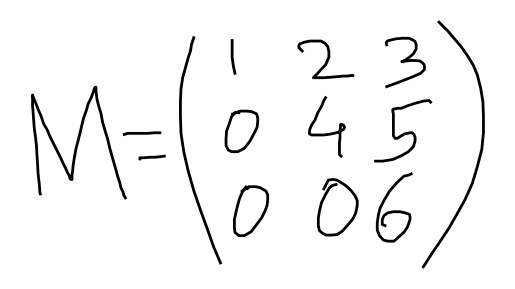 1 2 3
M = 0 4 5
0 0 6